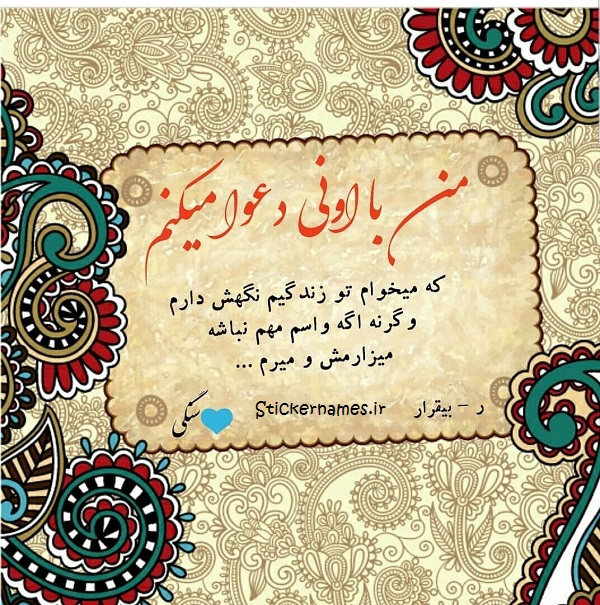 من با اونی دعوا میکنم
که میخوام تو زندگیم نگهش دارم
وگرنه اگه واسم مهم نباشه
میزارمش و میرم ...
ر - بیقرار Stickernames.ir سنگی